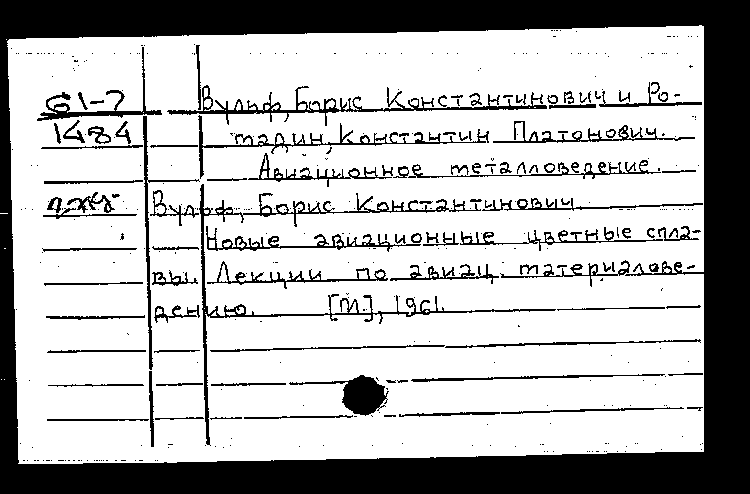 61-7
1484
Вульф, Борис Константинович и Ро-
мадин, Константин Платонович.
Авиационное металловедение.
Вульф, Борис Константинович.
Новые авиационные цветные спла-
вы. Лекции по авиац. материалове-
дению. [М.], 1961.